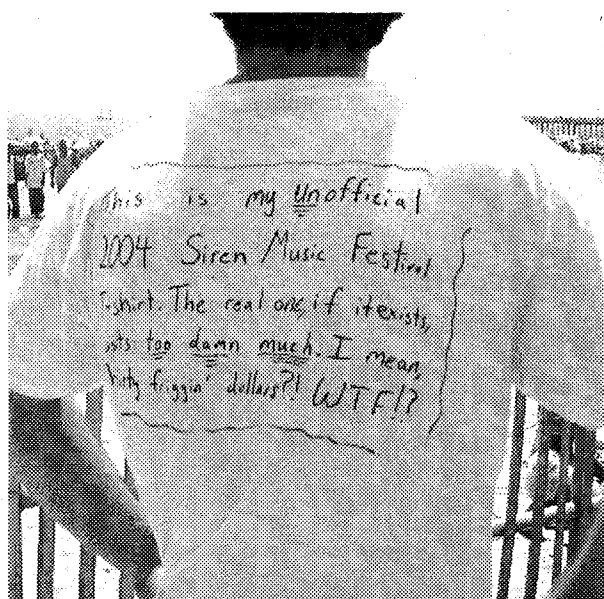 This is my Unofficial
2004 Siren Music Festival
T-shirt. The real one, if it exists,
costs too damn much. I mean,
thirty friggin' dollars?! WTF!?